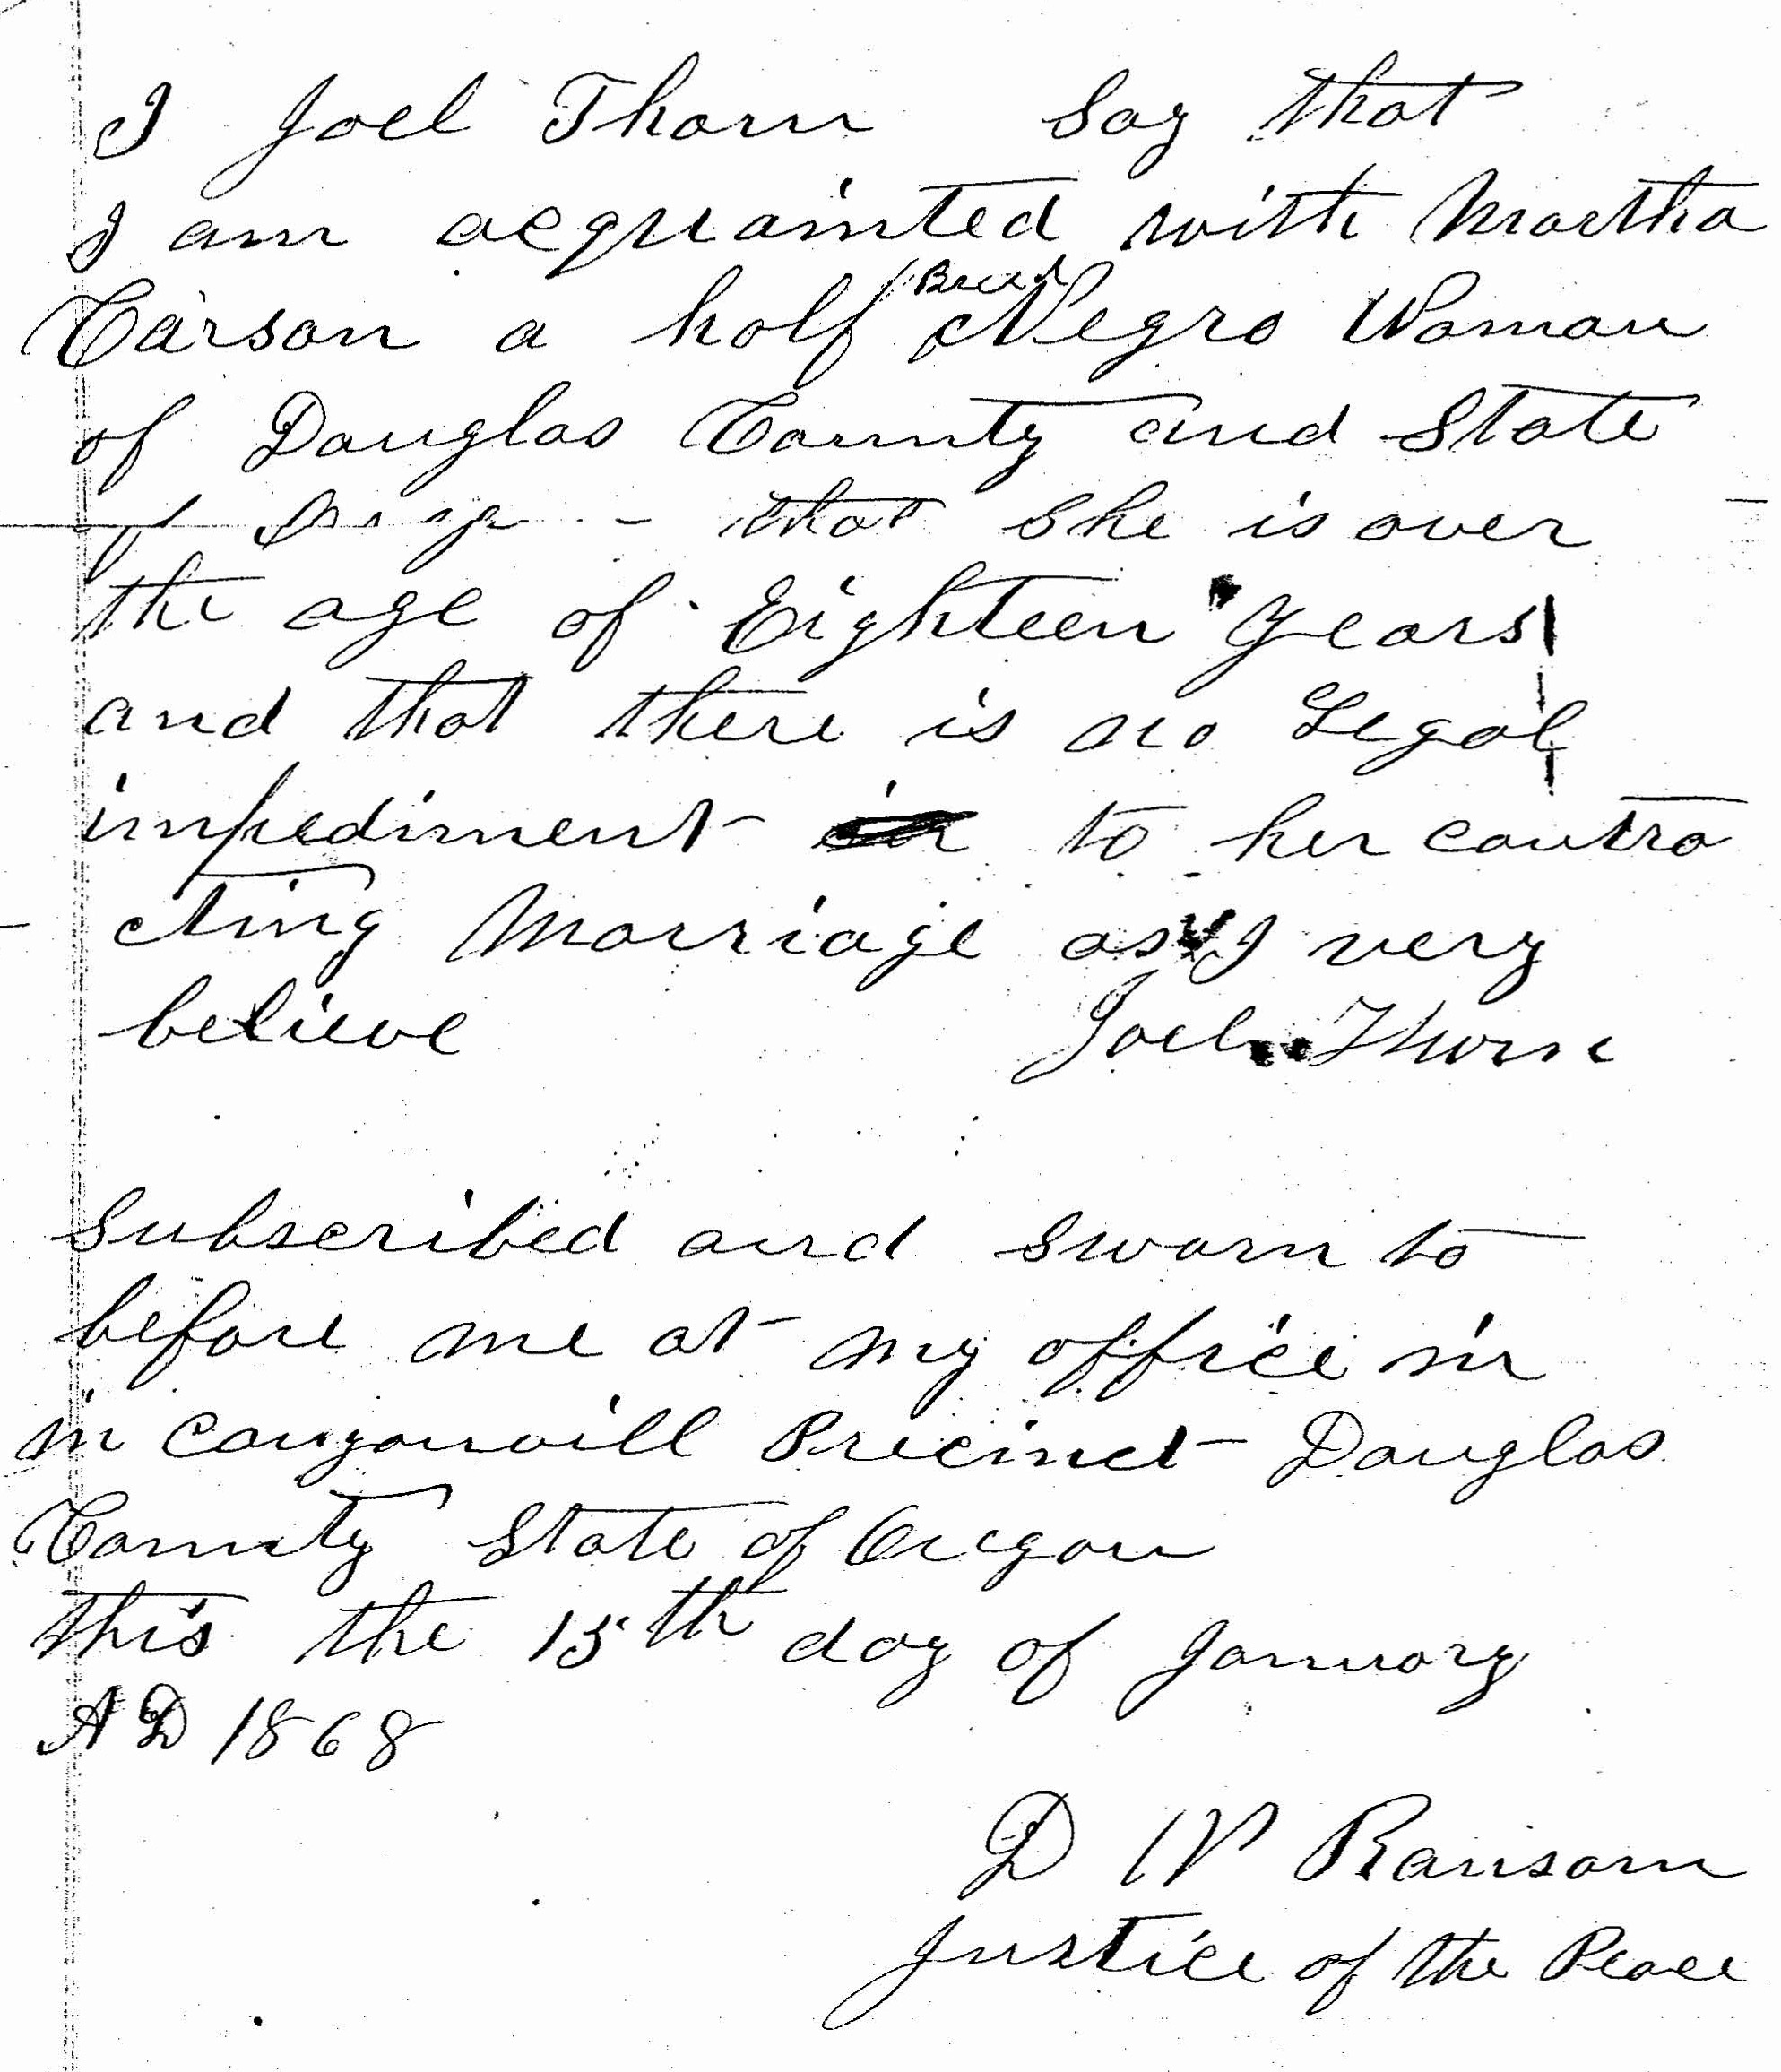 I Joel Thorn Say that
I am acquainted with Martha
Carson a half Breed Negro Woman
of Douglas County and State
of - that she is over
the age of Eighteen Years
and that there is no Legal
impediment in to her contra
cting Marriage as I very
believe Joel Thorn
Subscribed and sworn to
before me at my office in
in Canyonvill Precinct Douglas
County State of Oregon
this the 15th day of January
AD 1868
D W Ransom
Justice of the Peace